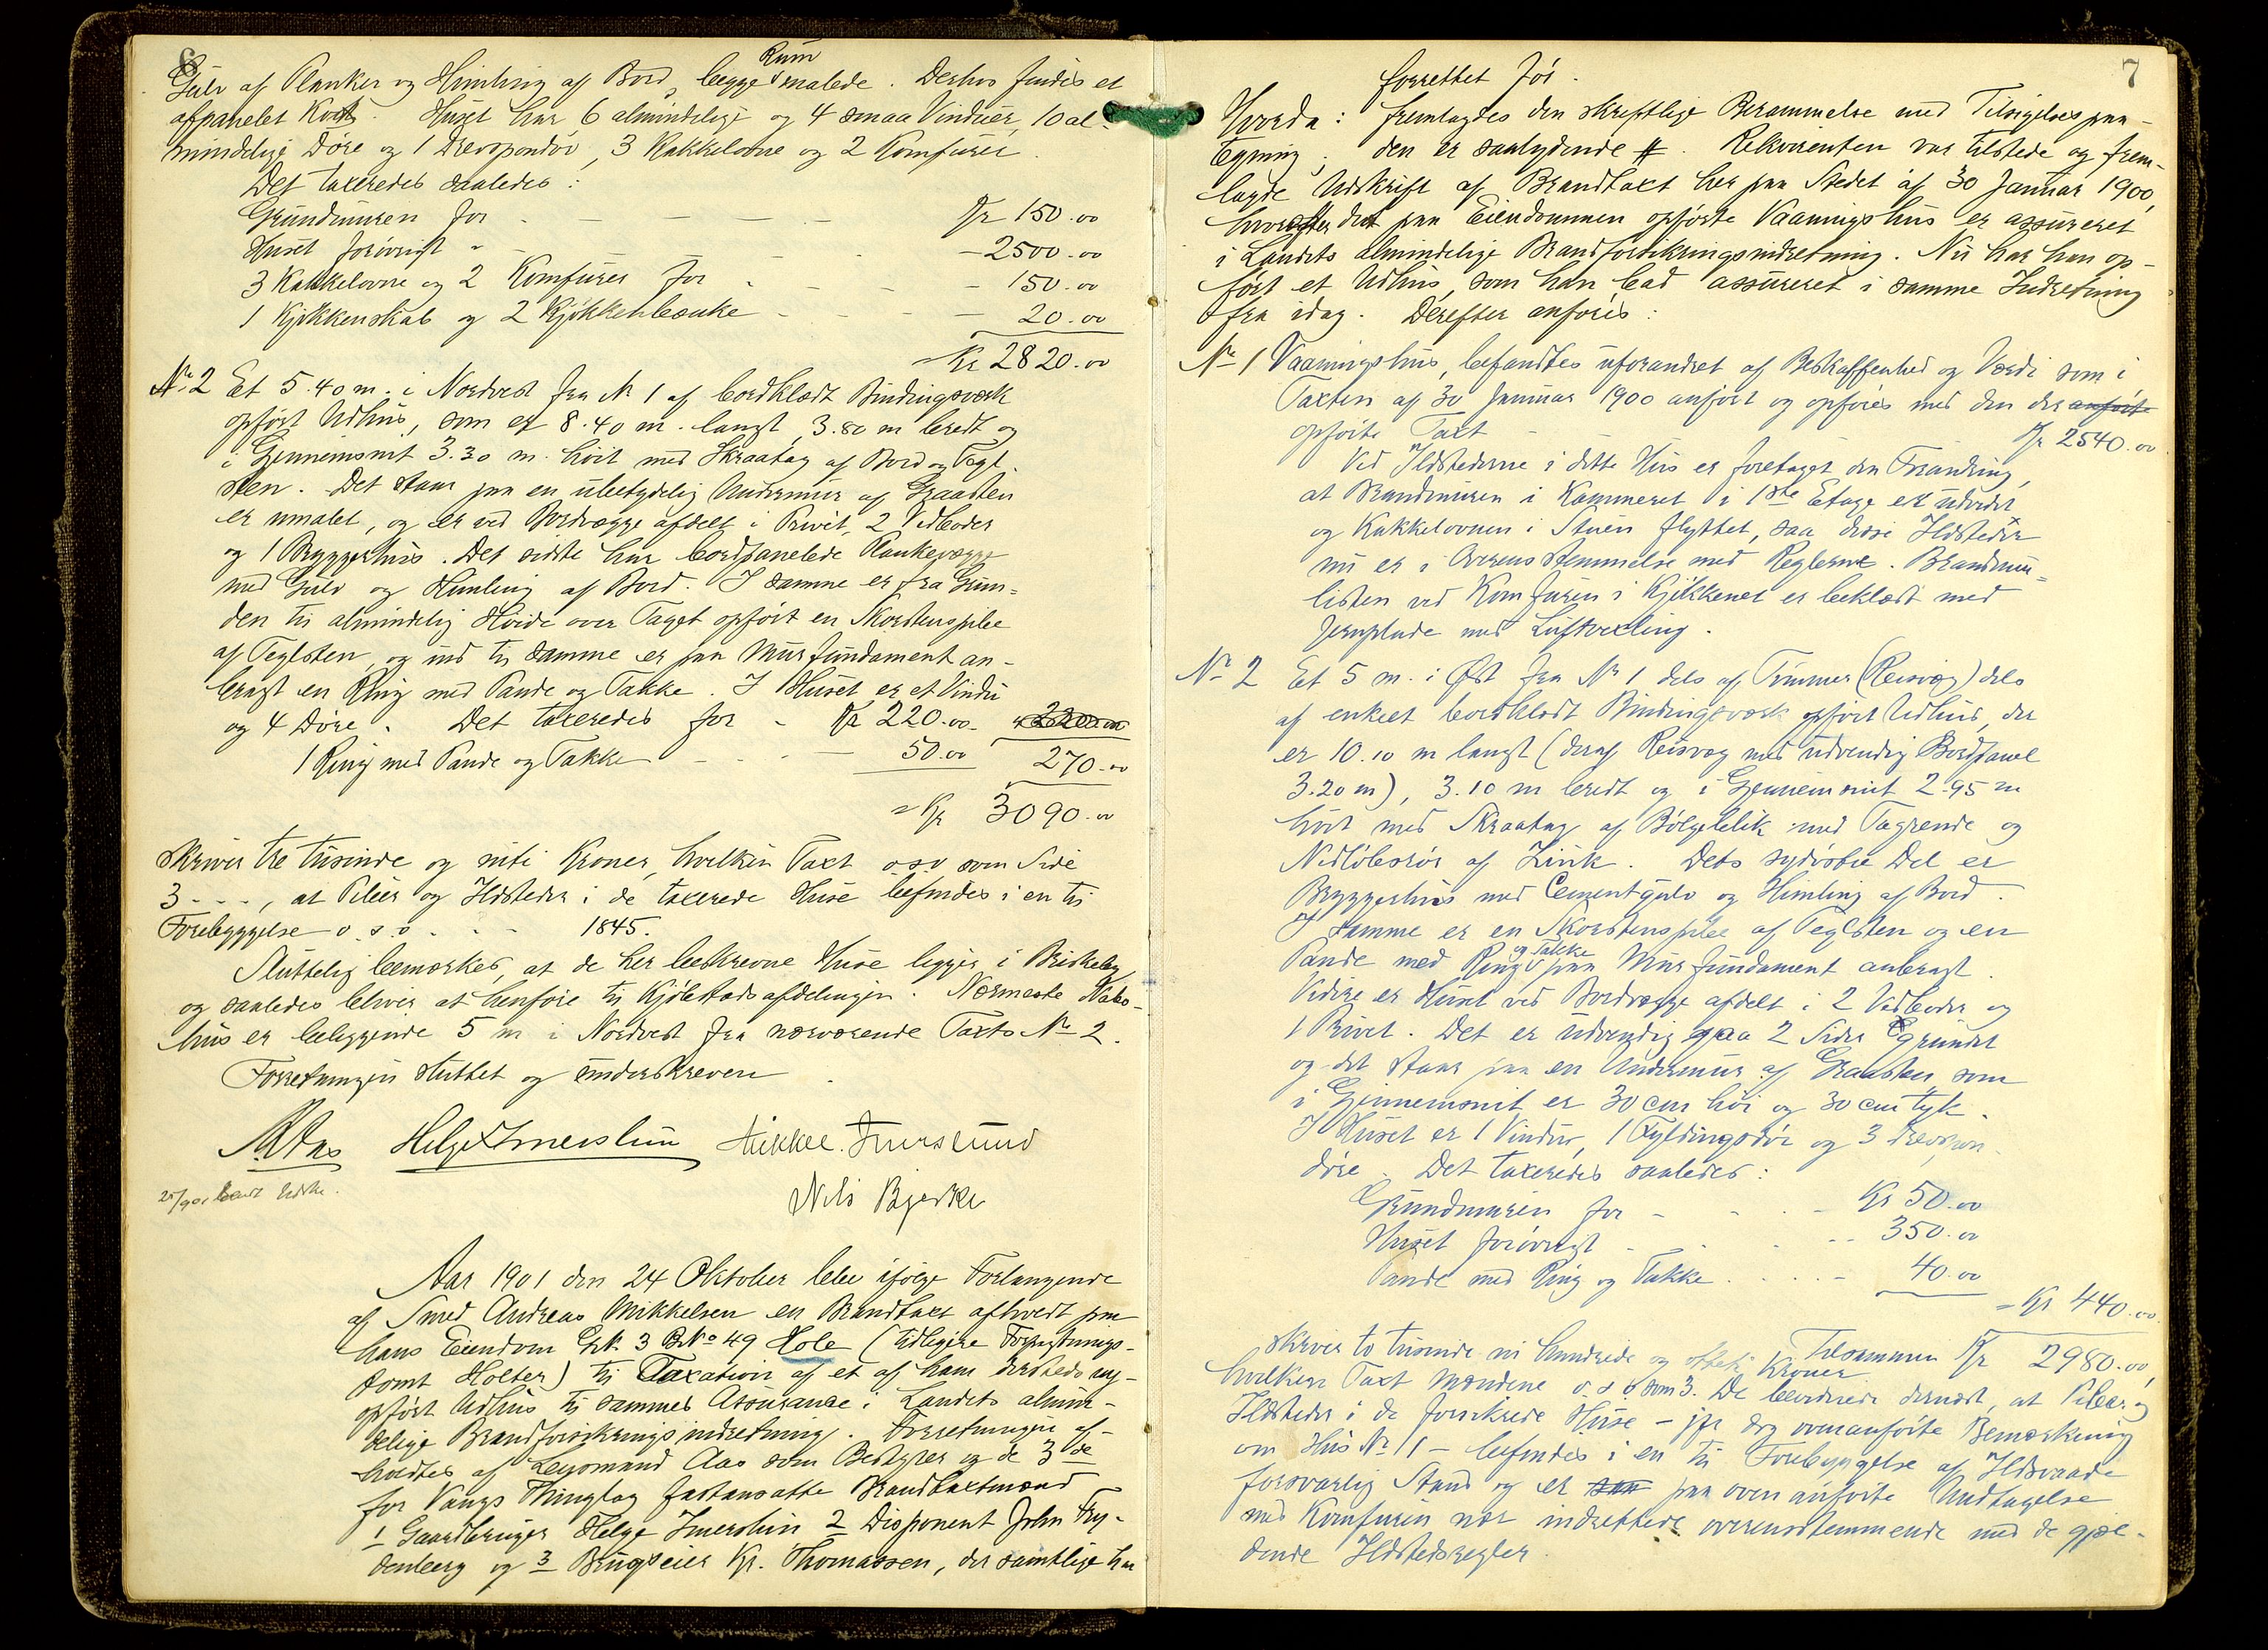 6
Gulv af Planker og Himling af Bord, begge Rum malede. Derhos findes et
afpanelet Kott. Huset har 6 almindelige og 4 smaa Vinduer, 10 al-
mindelige Døre og 1 Drevspondør, 3 Kakkelovne og 2 Komfurer.
Det taxeredes saaledes:
Grundmuren for - - - - Kr 150.00
Huset forøvrigt " - - - - 2500.00
3 Kakkelovne og 2 Komfurer for - - - 150.00
1 Kjøkkenskab og 2 Kjøkkenbænke - - - 20.00
= Kr 2820.00
No 2 Et 5.40 m. i Nordvest fra No 1 af bordklædt Bindingsværk
opført Udhus, som er 8.40 m. langt, 3.80 m bredt og
i Gjennemsnit 3.30 m. høit med Skraatag af Bord og Tegl-
sten. Det staar paa en ubetydelig Undermur af Graasten
er umalet, og er ved Bordvægge afdelt i Privét, 2 Vedboder
og 1 Bryggerhus. Det sidste har bordpanelede Plankevægge
med Gulv og Himling af Bord. I samme er fra Grun-
den til almindelig Høide over Taget opført en Skorstenspibe
af Teglsten, og ind til samme er paa Murfundament an-
bragt en Ring med Pande og Takke. I Huset er et Vindu
og 4 Døre. Det taxeredes for - Kr 220.00
1 Ring med Pande og Takke - - - 50.00 270.00
= Kr 3090.00
skriver tre tusinde og nitti Kroner, hvilken Taxt o.s.v som Side
3 - - -, at Piber og Ildsteder i de taxerede Huse befindes i en til
Forebyggelse o.s.v. - - 1845.
Sluttelig bemærkes, at de her beskrevne Huse ligger i Briskeby
og saaledes bliver at henføre til Kjøbstadsafdelingen. Nærmeste Nabo-
hus er beliggende 5 m i Nordvest fra nærværende Taxts No 2.
Forretningen sluttet og underskreven
Aas Helge Imerslun Mikkel Furuslund
Nils Bjerke
Aar 1901 den 24 Oktober blev ifølge Forlangende
af Smed Andreas Mikkelsen en Brandtaxt afholdt paa
hans Eiendom Gr. 3 B. No 49 Hole (tidligere Forpagtnings-
tomt Holter) til Taxation af et af ham dersteds ny-
opført Udhus til sammes Assurance i Landets almin-
delige Brandforsikringsindretning. Forretningen af-
holdtes af Lensmand Aas som Bestyrer og de 3de
for Vangs Thinglag fastansatte Brandtaxtmænd
1 Gaardbruger Helge Imerslun 2 Disponent John Fry-
denberg og 3 Brugseier Kr. Thomassen, der samtlige har
7
forrettet før.
Hvorda: fremlagdes den skriftlige Berammelse med Tilsigelsespaa-
tegning; den er saalydende #. Rekvirenten var tilstede og frem-
lagde Udskrift af Brandtaxt her paa Stedet af 30 Januar 1900,
hvorefter det paa Eiendommen opførte Vaaningshus er assureret
i Landets almindelige Brandforsikringsindretning. Nu har han op-
ført et Udhus, som han bad assureret i samme Indretning
fra idag. Derefter anføres:
No 1 Vaaningshus, befandtes uforandret af Beskaffenhed og Værdi som i
Taxten af 30 Januar 1900 anført og opføres med den der anførte
opførte Taxt - Kr 2540.00
Ved Ildstederne i dette Hus er foretaget den Forandring,
at Brandmuren i Kammeret i 1ste Etage er udvidet
og Kakkelovnen i Stuen flyttet, saa disse Ildsteder
nu er i Overensstemmelse med Reglerne. Brandmu-
listen ved Komfuren i Kjøkkenet er beklædt med
Jernplade med Luftvexling.
No 2 Et 5 m. i Øst fra No 1 dels af Tømmer (Reisvæg) dels
af enkelt bordklædt Bindingsværk opført Udhus, der
er 10.10 m langt (deraf Reisvæg med udvendig Bordpanel
3.20 m), 3.10 m bredt og i Gjennemsnit 2.95 m
høit med Skraatag af Bølgeblik med Tagrende og
Nedløbsrør af Zink. Dets sydøstre Del er
Bryggerhus med Cementgulv og Himling af Bord.
I samme er en Skorstenspibe af Teglsten og en
Pande med Ring og Takke paa Murfundament anbragt.
Videre er Huset ved Bordvægge afdelt i 2 Vedboder og
1 Privet. Det er udvendig paa 2 Sider grundet
og det staar paa en Undermur af Graasten, som
i Gjennemsnit er 30 cm høi og 30 cm tyk.
I Huset er 1 Vindu, 1 Fyldingsdør og 3 Drevspon-
døre. Det taxeredes saaledes:
Grundmuren for - - - Kr 50.00
Huset forøvrigt - - - 350.00
Pande med Ring og Takke - - - 40.00
= Kr 440.00
Tilsammen Kr 2980.00,
skriver to tusinde ni hundrede og otteti Kroner
hvilken Taxt Mændene o.s.v som 3. De beordrede dernæst, at Piber og
Ildsteder i de forsikrede Huse - jfr dog ovenanførte Bemærkning
om Hus No 1 - befindes i en til Forebyggelse af Ildsvaade
forsvarlig Stand og er paa ovenanførte Undtagelse
med Komfuren nær indrettede overensstemmende med de gjæl-
dende Ildstedsregler.